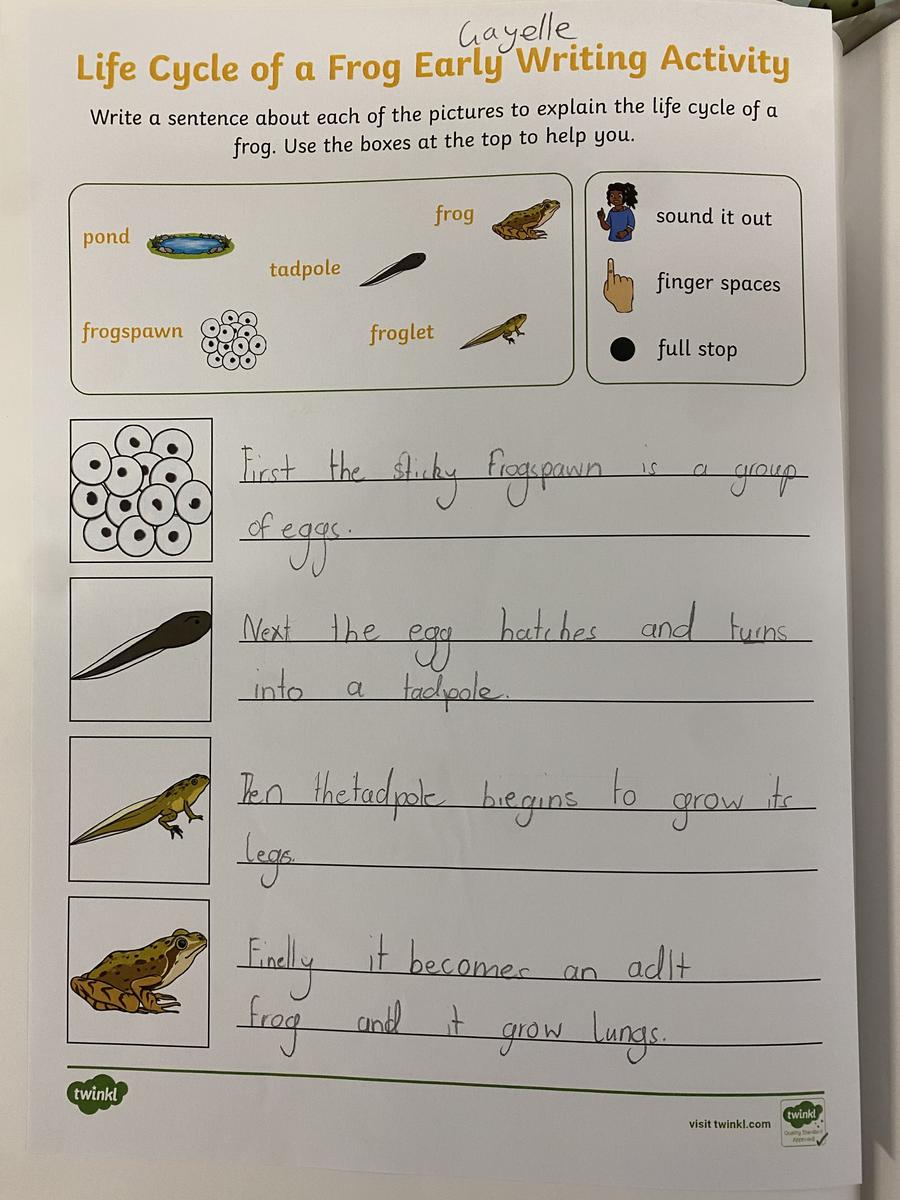 Gayelle
Life Cycle of a Frog Early Writing Activity
Write a sentence about each of the pictures to explain the life cycle of a
frog. Use the boxes at the top to help you.
frog
pond
tadpole
frogspawn
froglet
sound it out
finger spaces
full stop
First the sticky frogspawn is a group
of eggs.
Next the egg hatches and turns
into a tadpole.
Then the tadpole biegins to grow its
legs.
Finelly it becomes an adlt
frog and it grow lungs.
twinkl
visit twinkl.com
twinkl
Quality Standard
Approved